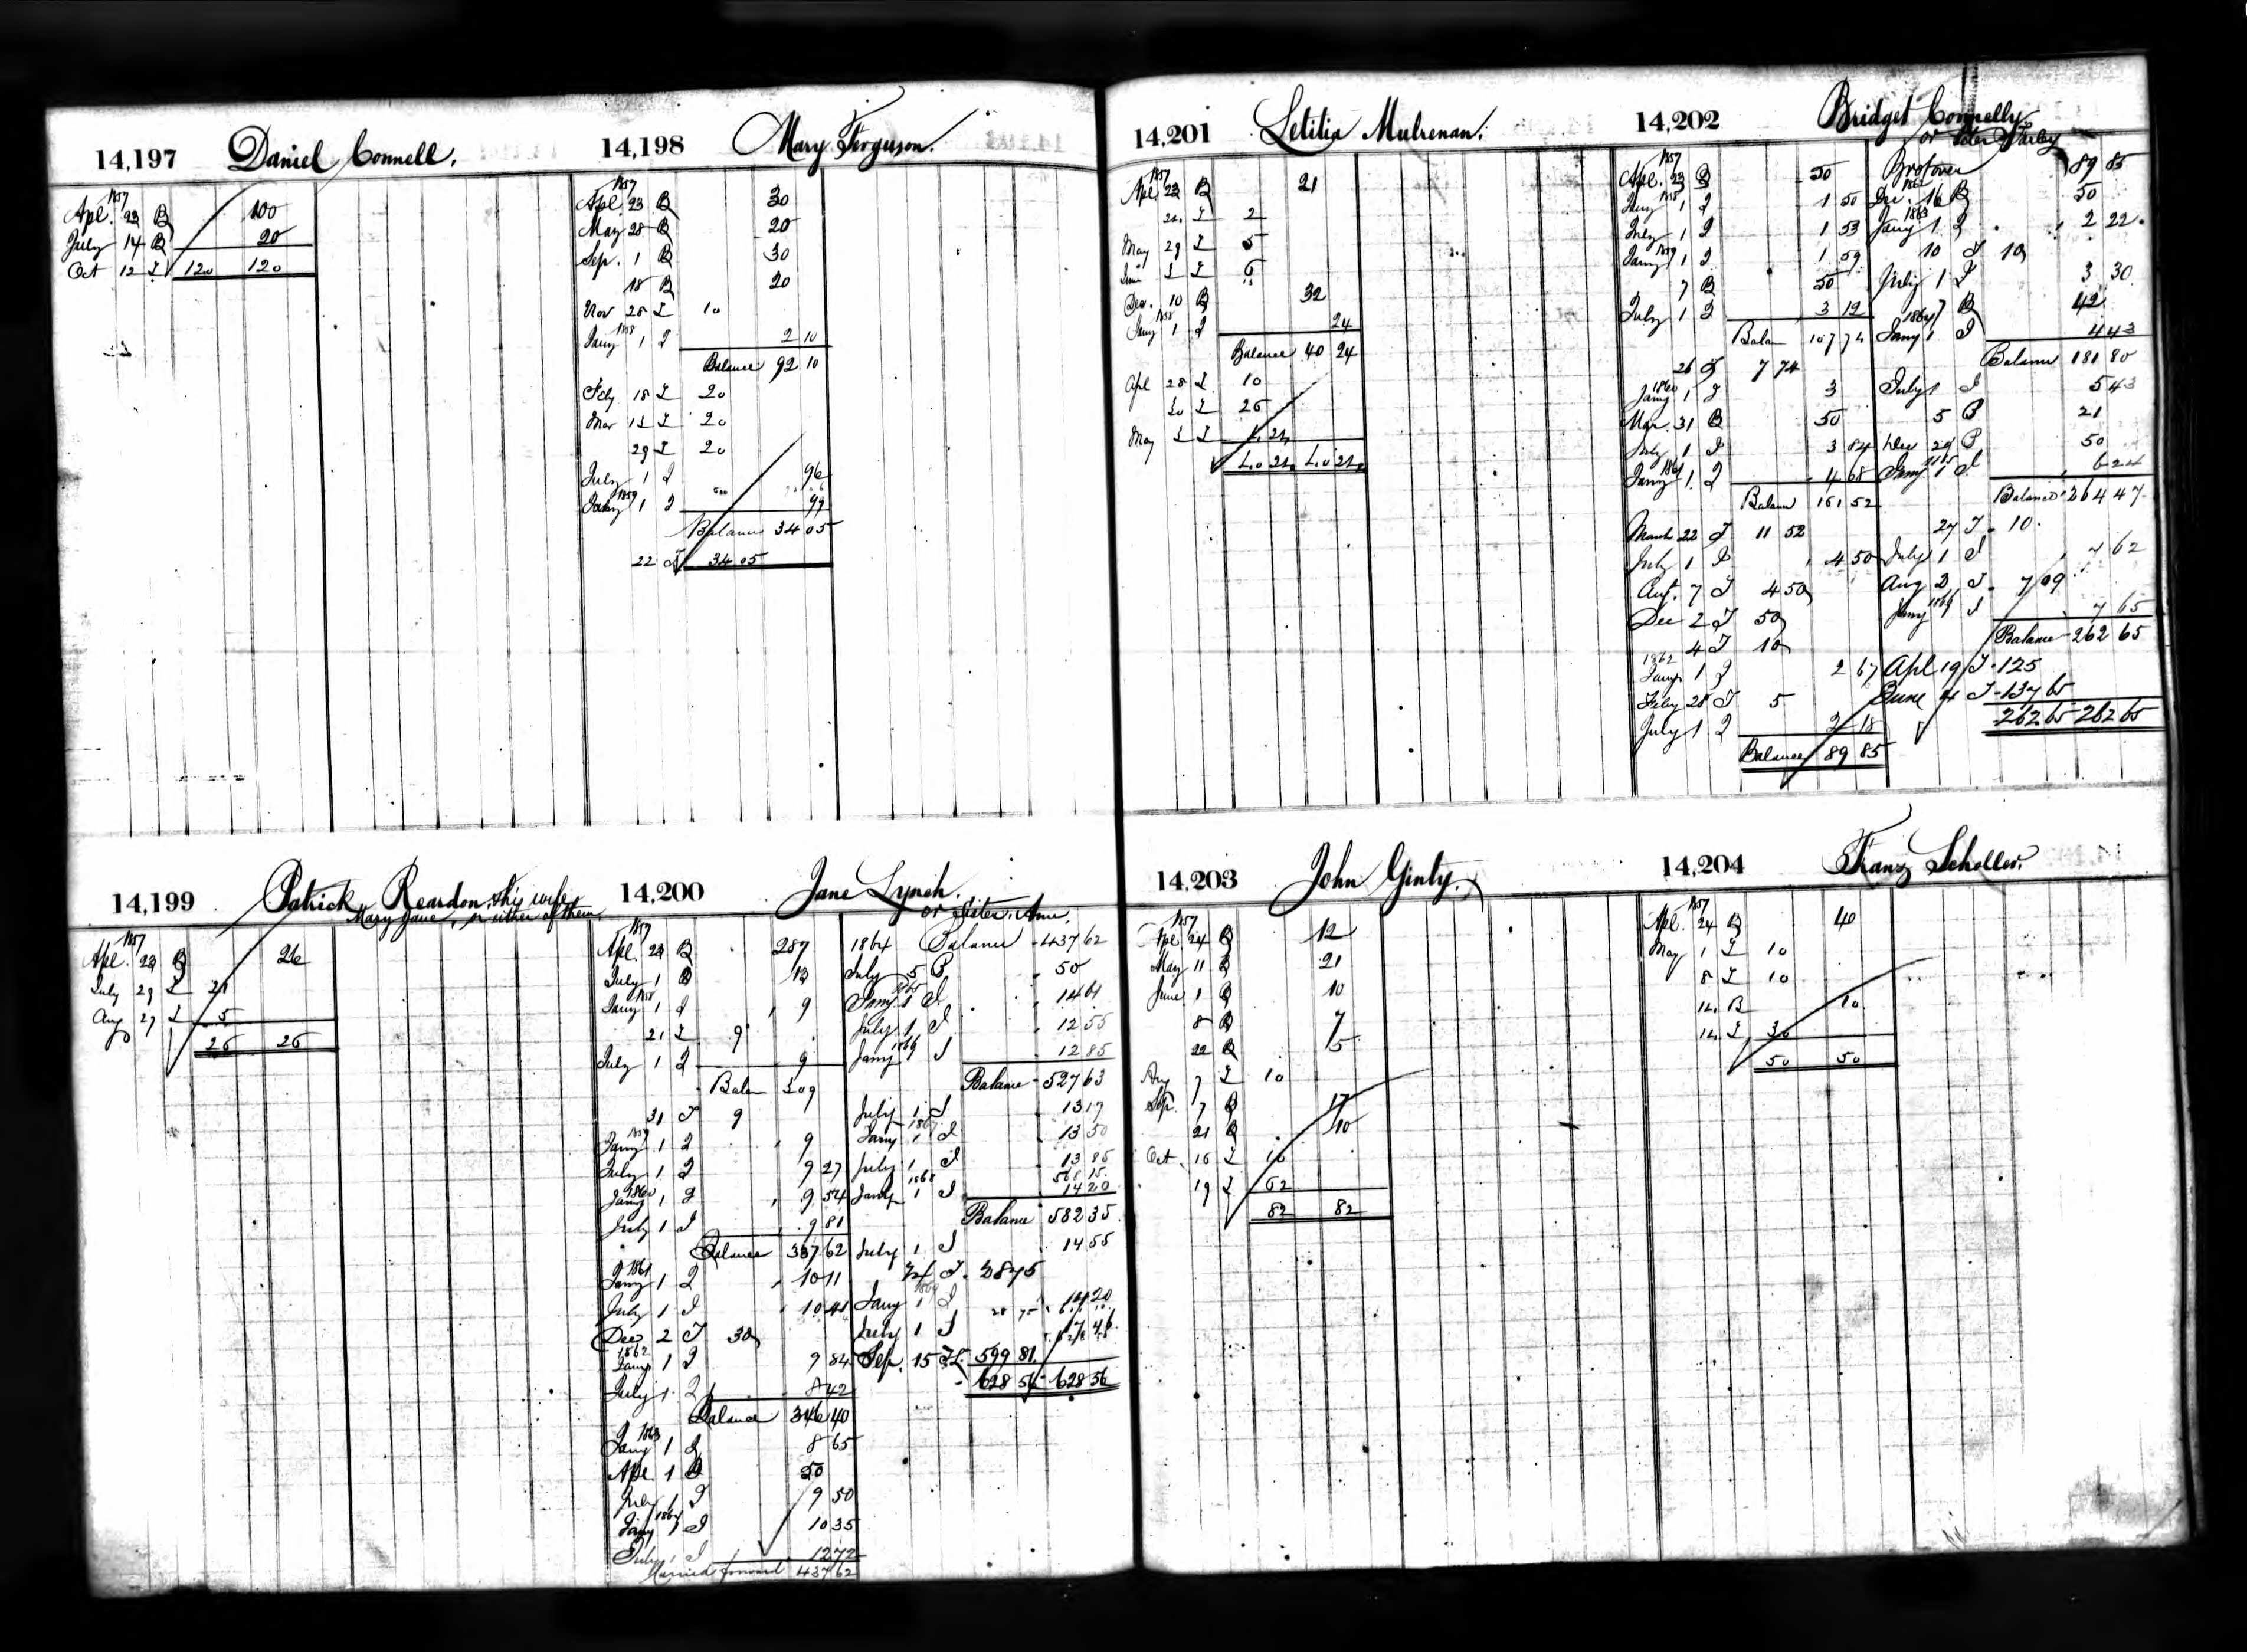 14,197 Daniel Connell.
1857
Apl. 23 B 100
July 14 B 20
Oct 12 I 120 120
14,198 Mary Ferguson.
1857
Apl. 23 B 30
May 28 B 20
Sep. 1 B 30
18 B 20
Nov 28 I 10
1858
Jany 1 I 2 10
Balance 92 10
Feby 18 I 20
Mar 13 I 20
29 I 20
July 1 I 96
1859
Jany 1 I 99
Balance 34 05
22 I 34 05
14,199 Patrick Reardon, his wife
Mary Jane, or either of them.
1857
Apl. 23 B 26
July 29 I 21
Aug 27 I 5
26 26
14,200 Jane Lynch.
or Sister, Ann.
1857
Apl. 23 B 287
July 1 B 13
1858
Jany 1 I 9
21 I 9
July 1 I 9
Balan 309
31 I 9
1859
Jany 1 I 9
July 1 I 9 27
1860
Jany 1 I 9 54
July 1 I 9 81
Balance 337 62
1861
Jany 1 I 10 11
July 1 I 10 41
Dec 2 I 30
1862
Jany 1 I 9 84
July 1 I 8 42
Balance 346 40
1863
Jany 1 I 8 65
Apl. 1 B 50
July 1 I 9 50
1864
Jany 1 I 10 35
July 1 I 12 72
Carried forward 437 62
1864 Balance 437 62
July 5 B 50
1865
Jany 1 I 14 61
July 1 I 12 55
1866
Jany 1 I 12 85
Balance 527 63
July 1 I 13 17
1867
Jany 1 I 13 50
July 1 I 13 85
568 15
1868
Jany 1 I 14 20
Balance 582 35
July 1 I 14 55
24 I 28 75
1869
Jany 1 I 14 20
July 1 I 17 46
Sep. 15 I 599 81
628 56 628 56
14,201 Letitia Mulrenan.
1857
Apl. 23 B 21
24 I 2
May 29 I 5
June 3 I 6
Dec. 10 B 32
1858
Jany 1 I 24
Balance 40 24
Apl 28 I 10
30 I 26
May 3 I 4 24
40 24 40 24
14,202 Bridget Connelly
or Peter Farley
1857
Apl. 23 B 50
1858
Jany 1 I 1 50
July 1 I 1 53
1859
Jany 1 I 1 59
7 B 50
July 1 I 3 12
Balan 107 74
26 I 7 74
1860
Jany 1 I 3
Mar. 31 B 50
July 1 I 3 84
1861
Jany 1 I 4 68
Balance 161 52
March 22 I 11 52
July 1 I 4 50
Aug. 7 I 4 50
Dec 2 I 50
4 I 10
1862
Jany 1 I 2 67
Feby 28 I 5
July 1 I 2 18
Balance 89 85
Brot over 89 85
1862
Dec. 16 B 50
1863
Jany 1 I 2 22
10 I 10
July 1 I 3 30
7 B 42
1864
Jany 1 I 4 43
Balance 181 80
July 1 I 5 43
5 B 21
Dec 29 B 50
1865
Jany 1 I 6 24
Balance 264 47
27 I 10
July 1 I 7 62
Aug 2 I 7 09
1866
Jany 1 I 7 65
Balance 262 65
Apl 19 I 125
June 4 I 137 65
262 65 262 65
14,203 John Ginty.
1857
Apl. 24 B 12
May 11 B 21
June 1 B 10
8 B 7
22 B 5
Aug 7 I 10
Sep. 7 B 17
21 B 10
Oct. 16 I 10
19 I 62
82 82
14,204 Franz Scholler.
1857
Apl. 24 B 40
May 1 I 10
8 I 10
14 B 10
14 I 30
50 50